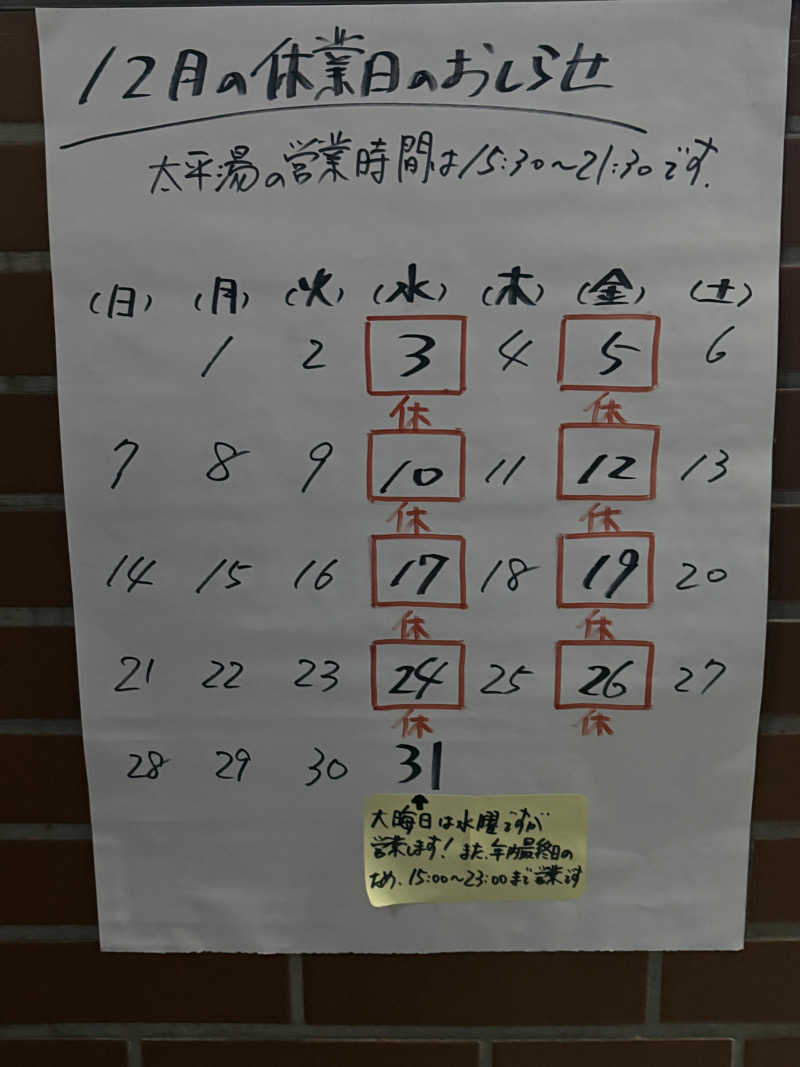 12月の休業日のおしらせ
太平湯の営業時間は15:30〜21:30です.
(日) (月) (火) (水) (木) (金) (土)
1 2 3 4 5 6
休 休
7 8 9 10 11 12 13
休 休
14 15 16 17 18 19 20
休 休
21 22 23 24 25 26 27
休 休
28 29 30 31
大晦日は水曜ですが
営業します! また、年内最終日の
ため、15:00〜23:00まで営業です